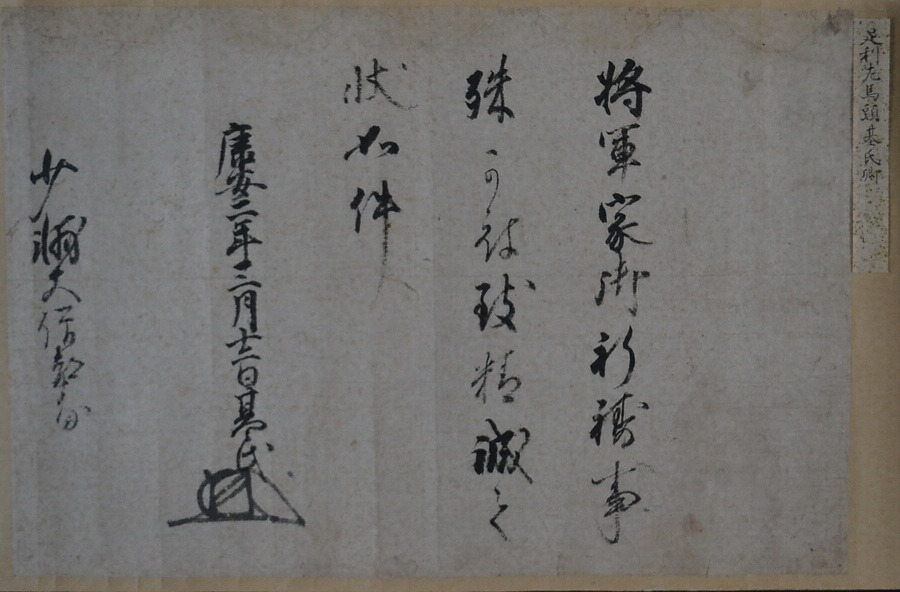 足利左馬頭基氏卿
将軍家御祈祷事
殊可被致精誠之
状如件
康安二年二月十二日基氏
少輔大僧都